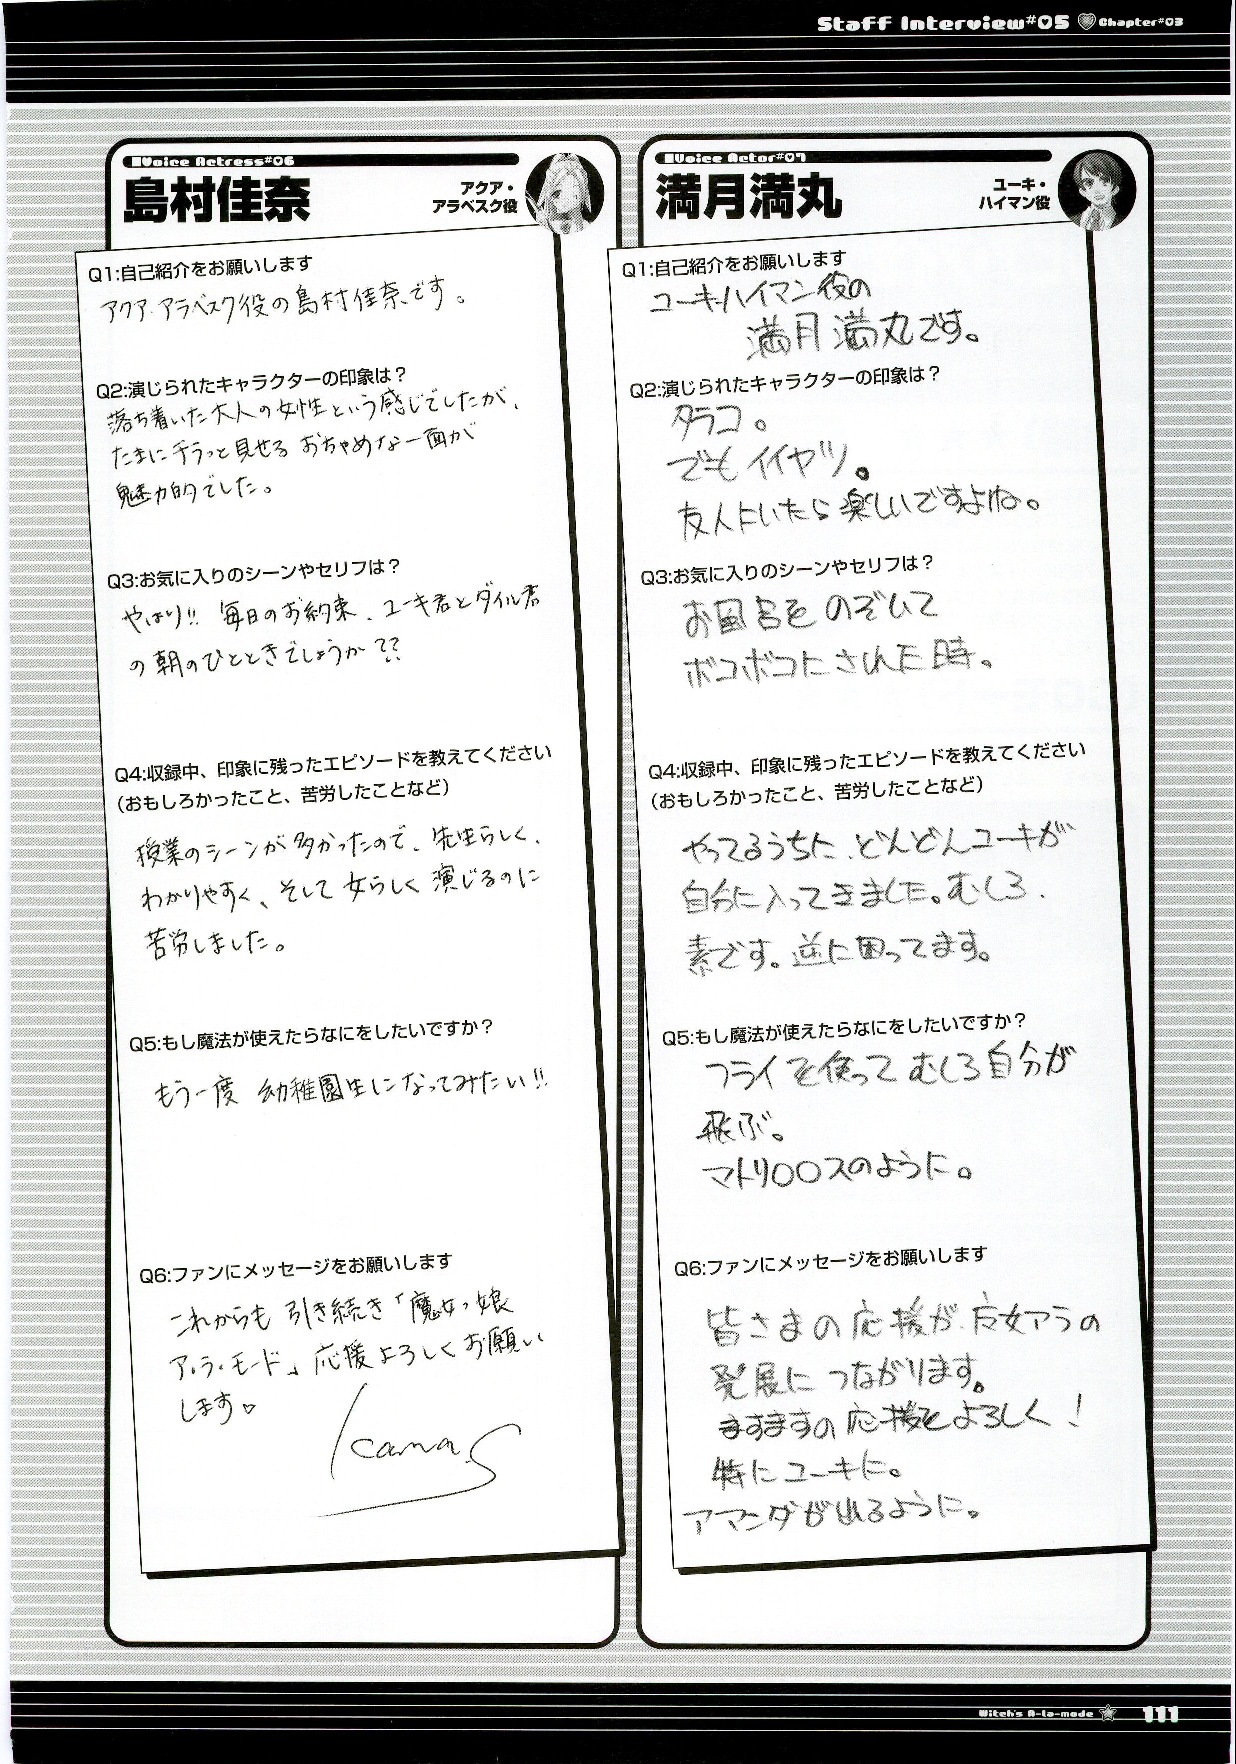 Staff Interview#05 Chapter#03
Voice Actress#06
島村佳奈
アクア・
アラベスク役
Q1:自己紹介をお願いします
アクア・アラベスク役の島村佳奈です。
Q2:演じられたキャラクターの印象は？
落ち着いた大人の女性という感じでしたが、
たまにチラっと見せるおちゃめな一面が
魅力的でした。
Q3:お気に入りのシーンやセリフは？
やはり!! 毎日のお約束、ユーキ君とダイル君
の朝のひとときでしょうか??
Q4:収録中、印象に残ったエピソードを教えてください
（おもしろかったこと、苦労したことなど）
授業のシーンが多かったので、先生らしく、
わかりやすく、そして女らしく演じるのに
苦労しました。
Q5:もし魔法が使えたらなにをしたいですか？
もう一度 幼稚園生になってみたい!!
Q6:ファンにメッセージをお願いします
これからも引き続き「魔女っ娘
ア・ラ・モード」応援よろしくお願い
します。
Kana S
Voice Actor#07
満月満丸
ユーキ・
ハイマン役
Q1:自己紹介をお願いします
ユーキ・ハイマン役の
満月満丸です。
Q2:演じられたキャラクターの印象は？
タラコ。
でもイイヤツ。
友人にいたら楽しいですよね。
Q3:お気に入りのシーンやセリフは？
お風呂をのぞいて
ボコボコにされた時。
Q4:収録中、印象に残ったエピソードを教えてください
（おもしろかったこと、苦労したことなど）
やってるうちに、どんどんユーキが
自分に入ってきました。むしろ、
素です。逆に困ってます。
Q5:もし魔法が使えたらなにをしたいですか？
フライを使ってむしろ自分が
飛ぶ。
マトリ○○スのように。
Q6:ファンにメッセージをお願いします
皆さまの応援が、魔女アラの
発展につながります。
ますますの応援をよろしく！
特にユーキに。
アマンダが出るように。
Witch's A-la-mode 111